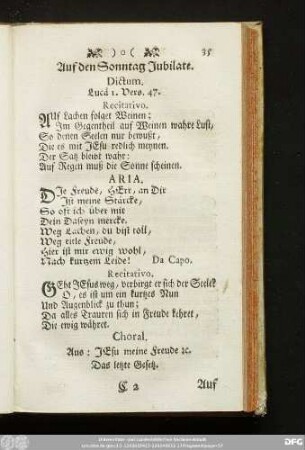 ) o ( 35
Auf den Sonntag Jubilate.
Dictum.
Lucä 1. Vers. 47.
Recitativo.
AUf Lachen folget Weinen;
Im Gegentheil auf Weinen wahre Lust,
So denen Seelen nur bewußt,
Die es mit JEsu redlich meynen.
Der Satz bleibt wahr:
Auf Regen muß die Sonne scheinen.
ARIA.
DIe Freude, HErr, an Dir
Ist meine Stärcke,
So oft ich über mir
Dein Daseyn mercke.
Weg Lachen, du bist toll,
Weg eitle Freude,
Hier ist mir ewig wohl,
Nach kurtzem Leide! Da Capo.
Recitativo.
GEht JEsus weg, verbirgt er sich der Seele?
O, es ist um ein kurtzes Nun
Und Augenblick zu thun;
Da alles Trauren sich in Freude kehret,
Die ewig währet.
Choral.
Aus: JEsu meine Freude ꝛc.
Das letzte Gesetz.
C 2 Auf
DFG